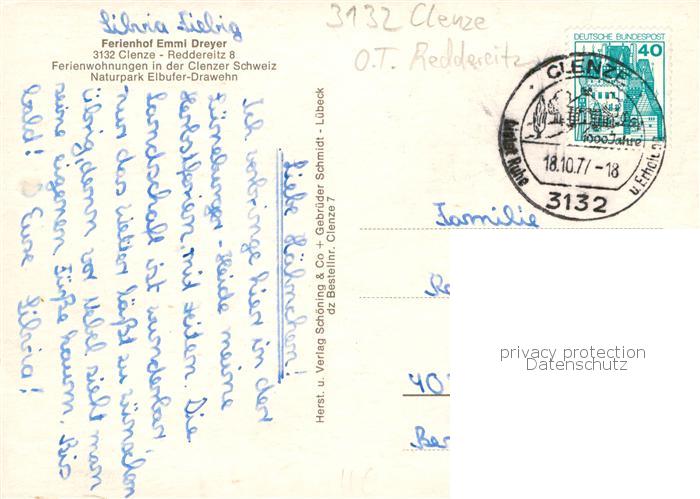 Silvia Liebig
Ferienhof Emmi Dreyer
3132 Clenze - Reddereitz 8
Ferienwohnungen in der Clenzer Schweiz
Naturpark Elbufer-Drawehn
3132 Clenze
O.T. Reddereitz
DEUTSCHE BUNDESPOST
40
CLENZE
1000 Jahre
bietet Ruhe
u. Erholung
18.10.77-18
3132
Liebe Hähnchen!
Ich verbringe hier in der
Lüneburger-Heide meine
Herbstferien mit Reiten. Die
Landschaft ist wunderbar,
nur das Wetter läßt zu wünschen
übrig, denn vor Nebel sieht man
seine eigenen Füße kaum. Bis
bald! Eure Silvia!
Herst. u. Verlag Schöning & Co + Gebrüder Schmidt - Lübeck
dz Bestellnr. Clenze 7
Familie
40
privacy protection
Datenschutz